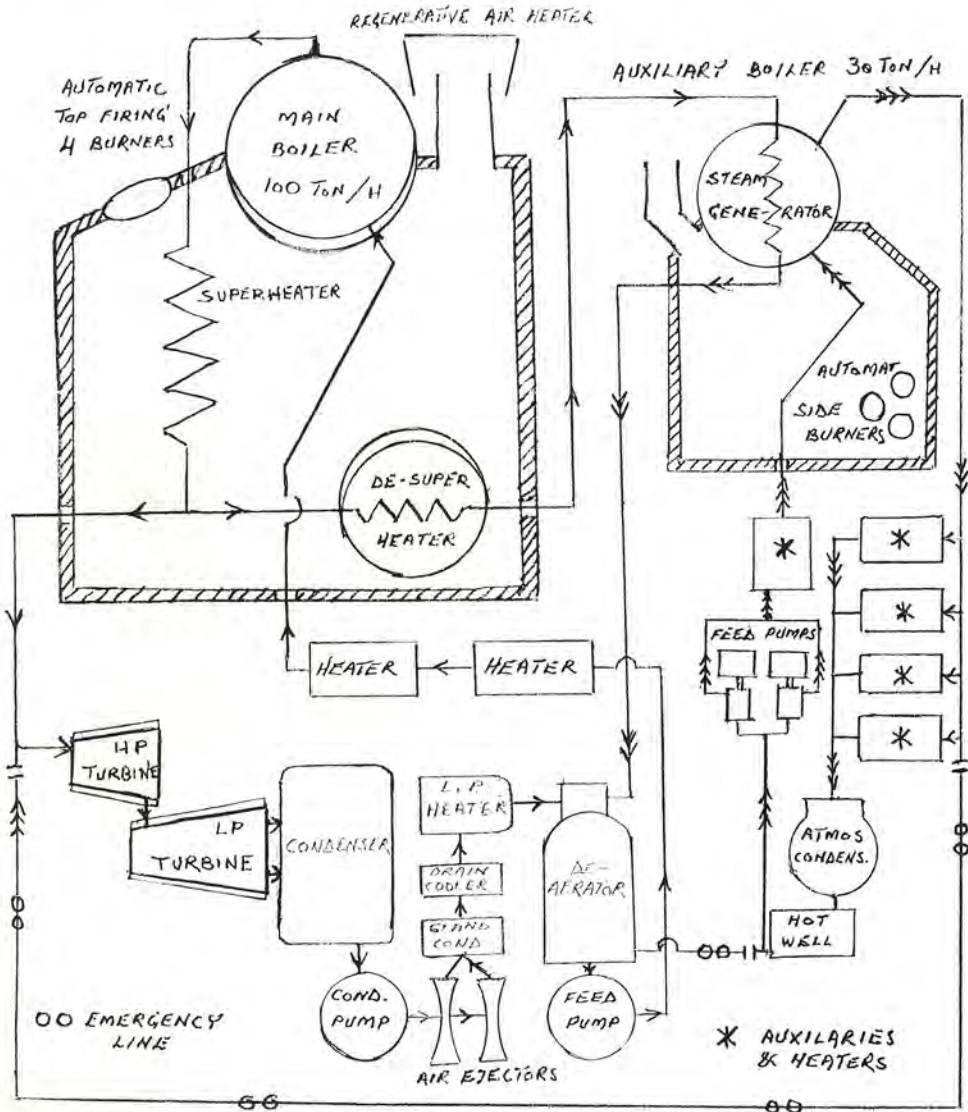 REGENERATIVE AIR HEATER
AUTOMATIC
TOP FIRING
4 BURNERS
MAIN
BOILER
100 TON/H
SUPERHEATER
DE-SUPER
HEATER
AUXILIARY BOILER 30 TON/H
STEAM
GENE-RATOR
AUTOMAT
SIDE
BURNERS
FEED PUMPS
HEATER
HEATER
HP
TURBINE
LP
TURBINE
CONDENSER
L.P.
HEATER
DRAIN
COOLER
GLAND
COND
DE-
AERATOR
ATMOS
CONDENS.
HOT
WELL
COND.
PUMP
FEED
PUMP
AIR EJECTORS
OO EMERGENCY
LINE
* AUXILARIES
& HEATERS